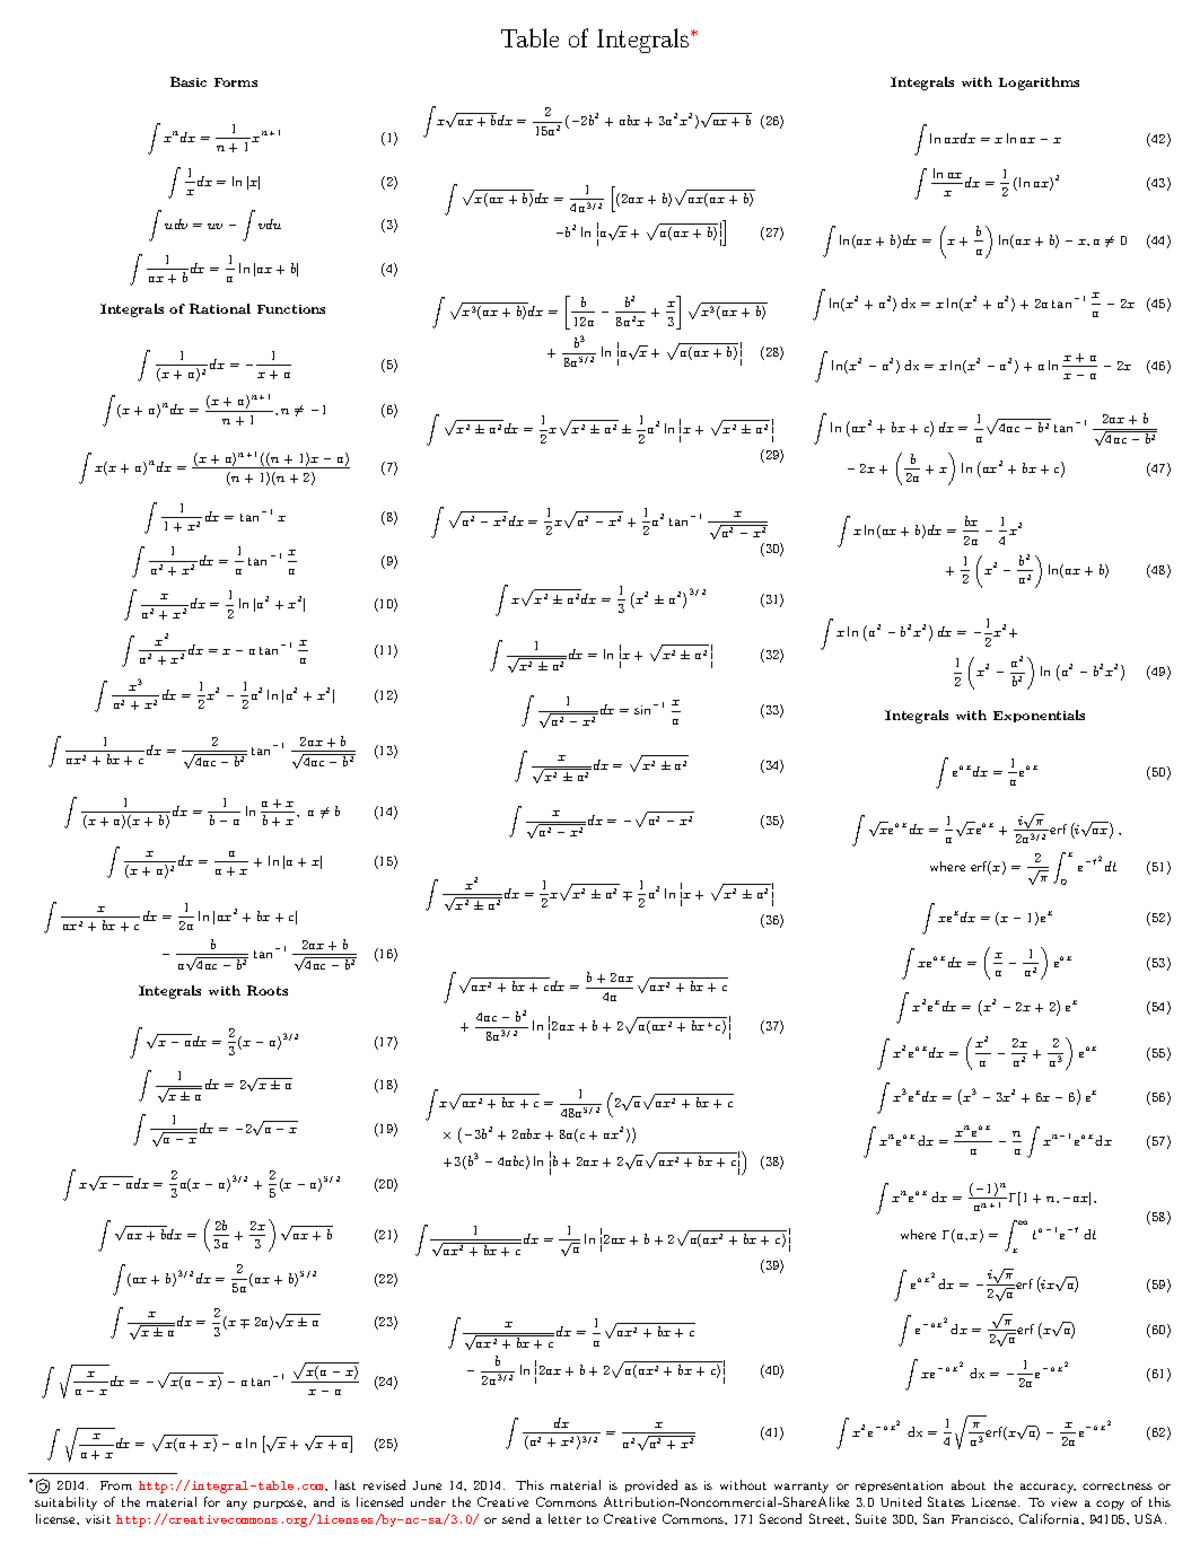 Table of Integrals*
Basic Forms
∫ xⁿdx = 1/(n + 1) xⁿ⁺¹ (1)
∫ 1/x dx = ln |x| (2)
∫ udv = uv − ∫ vdu (3)
∫ 1/(ax + b) dx = 1/a ln |ax + b| (4)
Integrals of Rational Functions
∫ 1/(x + a)² dx = − 1/(x + a) (5)
∫ (x + a)ⁿdx = (x + a)ⁿ⁺¹/(n + 1), n ≠ −1 (6)
∫ x(x + a)ⁿdx = (x + a)ⁿ⁺¹((n + 1)x − a)/((n + 1)(n + 2)) (7)
∫ 1/(1 + x²) dx = tan⁻¹ x (8)
∫ 1/(a² + x²) dx = 1/a tan⁻¹ x/a (9)
∫ x/(a² + x²) dx = 1/2 ln |a² + x²| (10)
∫ x²/(a² + x²) dx = x − a tan⁻¹ x/a (11)
∫ x³/(a² + x²) dx = 1/2 x² − 1/2 a² ln |a² + x²| (12)
∫ 1/(ax² + bx + c) dx = 2/√(4ac − b²) tan⁻¹ (2ax + b)/√(4ac − b²) (13)
∫ 1/((x + a)(x + b)) dx = 1/(b − a) ln (a + x)/(b + x), a ≠ b (14)
∫ x/(x + a)² dx = a/(a + x) + ln |a + x| (15)
∫ x/(ax² + bx + c) dx = 1/(2a) ln |ax² + bx + c|
− b/(a√(4ac − b²)) tan⁻¹ (2ax + b)/√(4ac − b²) (16)
Integrals with Roots
∫ √(x − a) dx = 2/3 (x − a)^(3/2) (17)
∫ 1/√(x ± a) dx = 2√(x ± a) (18)
∫ 1/√(a − x) dx = −2√(a − x) (19)
∫ x√(x − a) dx = 2/3 a(x − a)^(3/2) + 2/5 (x − a)^(5/2) (20)
∫ √(ax + b) dx = (2b/(3a) + 2x/3) √(ax + b) (21)
∫ (ax + b)^(3/2) dx = 2/(5a) (ax + b)^(5/2) (22)
∫ x/√(x ± a) dx = 2/3 (x ∓ 2a)√(x ± a) (23)
∫ √(x/(a − x)) dx = −√(x(a − x)) − a tan⁻¹ √(x(a − x))/(x − a) (24)
∫ √(x/(a + x)) dx = √(x(a + x)) − a ln [√x + √(x + a)] (25)
∫ x√(ax + b) dx = 2/(15a²) (−2b² + abx + 3a²x²)√(ax + b) (26)
∫ √(x(ax + b)) dx = 1/(4a^(3/2)) [(2ax + b)√(ax(ax + b))
−b² ln |a√x + √(a(ax + b))|] (27)
∫ √(x³(ax + b)) dx = [b/(12a) − b²/(8a²x) + x/3] √(x³(ax + b))
+ b³/(8a^(5/2)) ln |a√x + √(a(ax + b))| (28)
∫ √(x² ± a²) dx = 1/2 x√(x² ± a²) ± 1/2 a² ln |x + √(x² ± a²)|
(29)
∫ √(a² − x²) dx = 1/2 x√(a² − x²) + 1/2 a² tan⁻¹ x/√(a² − x²)
(30)
∫ x√(x² ± a²) dx = 1/3 (x² ± a²)^(3/2) (31)
∫ 1/√(x² ± a²) dx = ln |x + √(x² ± a²)| (32)
∫ 1/√(a² − x²) dx = sin⁻¹ x/a (33)
∫ x/√(x² ± a²) dx = √(x² ± a²) (34)
∫ x/√(a² − x²) dx = −√(a² − x²) (35)
∫ x²/√(x² ± a²) dx = 1/2 x√(x² ± a²) ∓ 1/2 a² ln |x + √(x² ± a²)|
(36)
∫ √(ax² + bx + c) dx = (b + 2ax)/(4a) √(ax² + bx + c)
+ (4ac − b²)/(8a^(3/2)) ln |2ax + b + 2√(a(ax² + bx⁺c))| (37)
∫ x√(ax² + bx + c) = 1/(48a^(5/2)) (2√a√(ax² + bx + c)
× (−3b² + 2abx + 8a(c + ax²))
+3(b³ − 4abc) ln |b + 2ax + 2√a√(ax² + bx + c)|) (38)
∫ 1/√(ax² + bx + c) dx = 1/√a ln |2ax + b + 2√(a(ax² + bx + c))|
(39)
∫ x/√(ax² + bx + c) dx = 1/a √(ax² + bx + c)
− b/(2a^(3/2)) ln |2ax + b + 2√(a(ax² + bx + c))| (40)
∫ dx/(a² + x²)^(3/2) = x/(a²√(a² + x²)) (41)
Integrals with Logarithms
∫ ln axdx = x ln ax − x (42)
∫ ln ax/x dx = 1/2 (ln ax)² (43)
∫ ln(ax + b)dx = (x + b/a) ln(ax + b) − x, a ≠ 0 (44)
∫ ln(x² + a²) dx = x ln(x² + a²) + 2a tan⁻¹ x/a − 2x (45)
∫ ln(x² − a²) dx = x ln(x² − a²) + a ln (x + a)/(x − a) − 2x (46)
∫ ln (ax² + bx + c) dx = 1/a √(4ac − b²) tan⁻¹ (2ax + b)/√(4ac − b²)
− 2x + (b/(2a) + x) ln (ax² + bx + c) (47)
∫ x ln(ax + b)dx = bx/(2a) − 1/4 x²
+ 1/2 (x² − b²/a²) ln(ax + b) (48)
∫ x ln (a² − b²x²) dx = −1/2 x²+
1/2 (x² − a²/b²) ln (a² − b²x²) (49)
Integrals with Exponentials
∫ e^(ax) dx = 1/a e^(ax) (50)
∫ √x e^(ax) dx = 1/a √x e^(ax) + i√π/(2a^(3/2)) erf (i√(ax)),
where erf(x) = 2/√π ∫₀ˣ e^(−t²) dt (51)
∫ xeˣdx = (x − 1)eˣ (52)
∫ xe^(ax) dx = (x/a − 1/a²) e^(ax) (53)
∫ x²eˣdx = (x² − 2x + 2) eˣ (54)
∫ x²e^(ax) dx = (x²/a − 2x/a² + 2/a³) e^(ax) (55)
∫ x³eˣdx = (x³ − 3x² + 6x − 6) eˣ (56)
∫ xⁿe^(ax) dx = xⁿe^(ax)/a − n/a ∫ xⁿ⁻¹e^(ax) dx (57)
∫ xⁿe^(ax) dx = (−1)ⁿ/aⁿ⁺¹ Γ[1 + n, −ax],
where Γ(a, x) = ∫ₓ^∞ t^(a−1)e^(−t) dt (58)
∫ e^(ax²) dx = − i√π/(2√a) erf (ix√a) (59)
∫ e^(−ax²) dx = √π/(2√a) erf (x√a) (60)
∫ xe^(−ax²) dx = − 1/(2a) e^(−ax²) (61)
∫ x²e^(−ax²) dx = 1/4 √(π/a³) erf(x√a) − x/(2a) e^(−ax²) (62)
*© 2014. From http://integral-table.com, last revised June 14, 2014. This material is provided as is without warranty or representation about the accuracy, correctness or
suitability of the material for any purpose, and is licensed under the Creative Commons Attribution-Noncommercial-ShareAlike 3.0 United States License. To view a copy of this
license, visit http://creativecommons.org/licenses/by-nc-sa/3.0/ or send a letter to Creative Commons, 171 Second Street, Suite 300, San Francisco, California, 94105, USA.